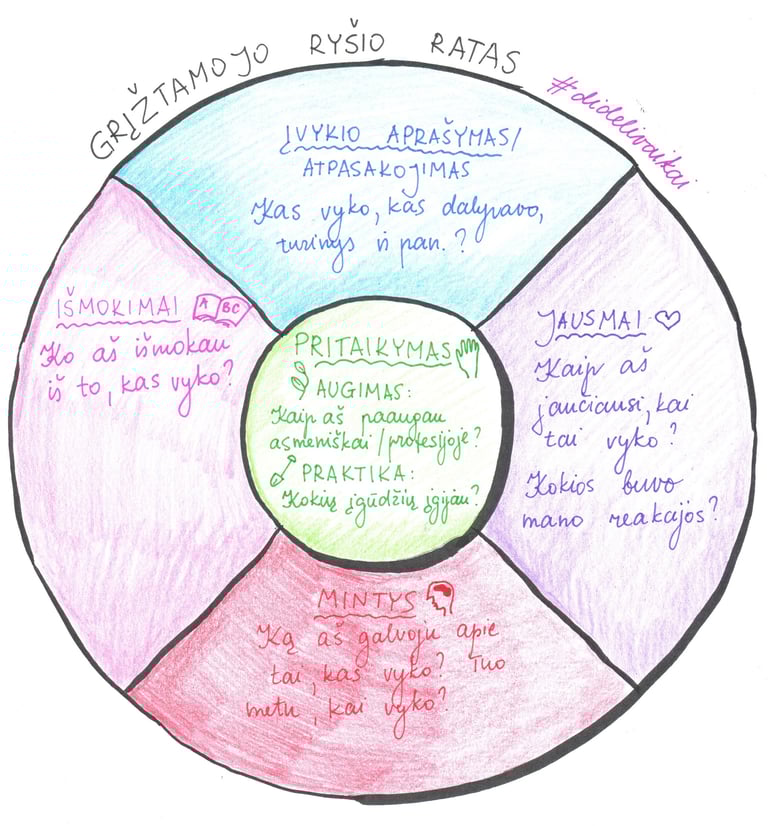 GRĮŽTAMOJO RYŠIO RATAS
#didelivaikai
ĮVYKIO APRAŠYMAS/
ATPASAKOJIMAS
Kas vyko, kas dalyvavo,
turinys ir pan.?
JAUSMAI
Kaip aš
jaučiausi, kai
tai vyko?
Kokios buvo
mano reakcijos?
MINTYS
Ką aš galvoju apie
tai, kas vyko? Tuo
metu, kai vyko?
IŠMOKIMAI
A BC
Ko aš išmokau
iš to, kas vyko?
PRITAIKYMAS
AUGIMAS:
Kaip aš paaugau
asmeniškai/profesijoje?
PRAKTIKA:
Kokių įgūdžių įgijau?